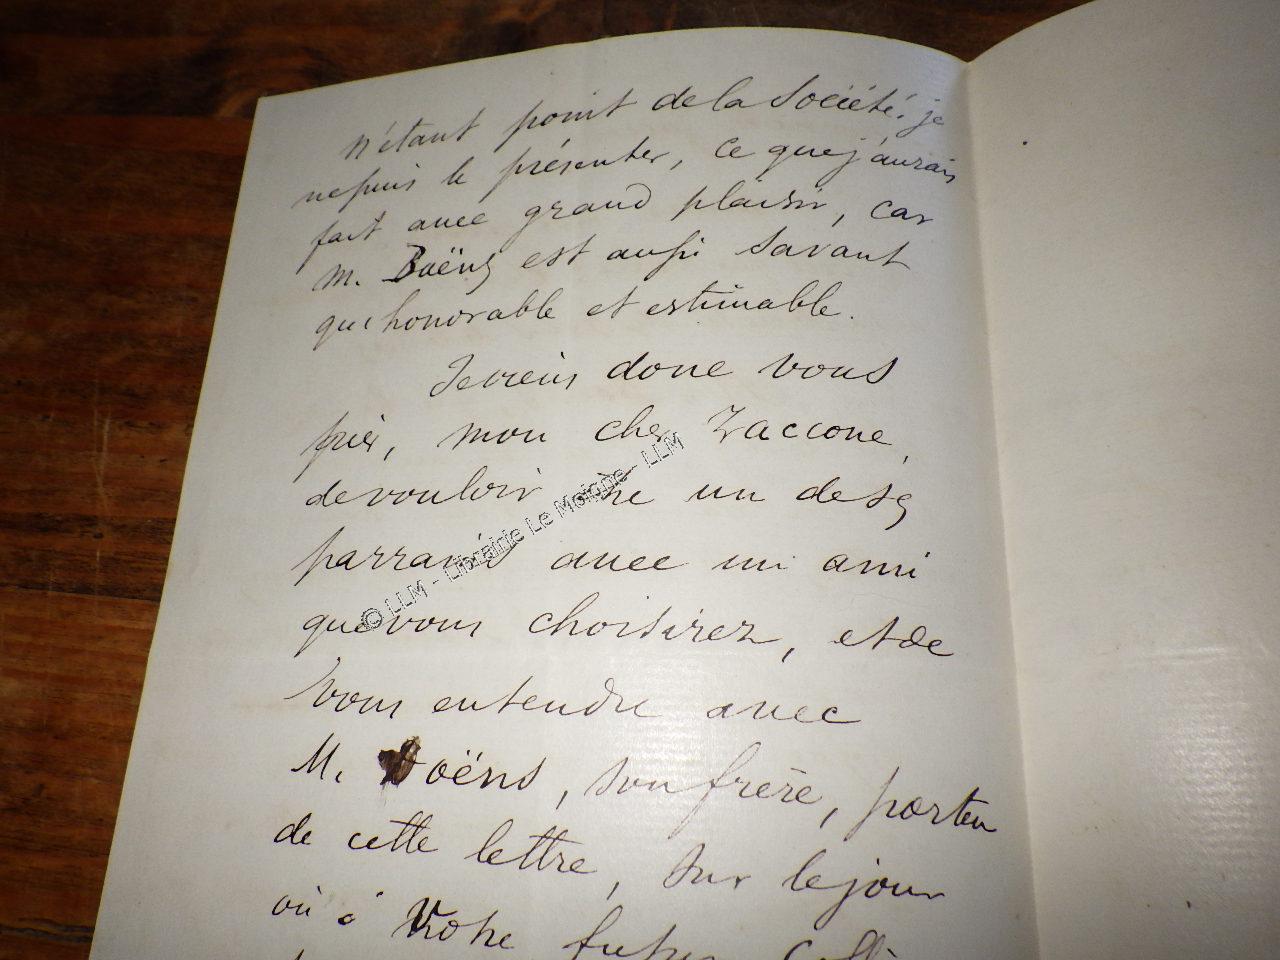 n'étant point de la Société, je
ne puis le présenter, ce que j'aurais
fait avec grand plaisir, car
M. Boëns est aussi savant
qu'honorable et estimable.
Je viens donc vous
prier, mon cher Zaccone,
de vouloir être un de ses
parrains avec un ami
que vous choisirez, et de
vous entendre avec
M. Boëns, son frère, porteur
de cette lettre, sur le jour
où votre futur
© LLM - Librairie Le Moigne - LLM